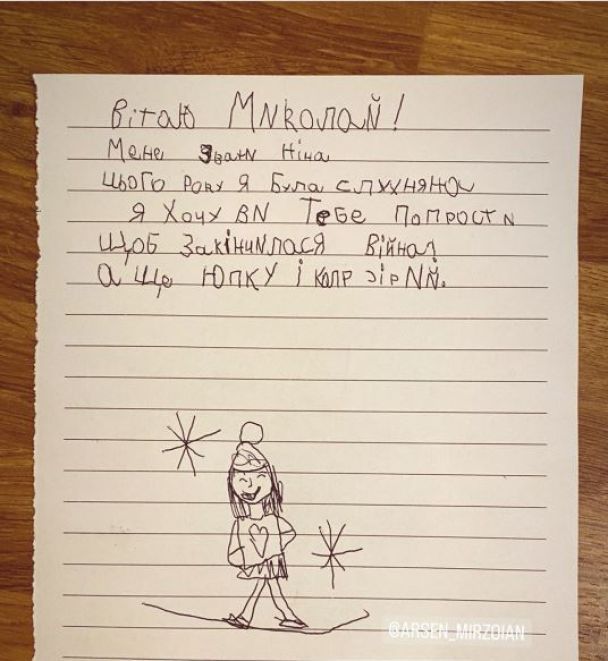 Вітаю Миколай!
Мене звати Ніна
Цього року я була слухняна
Я хочу ви Тебе попрости
Щоб закінчилася війна!
А ще юпку і
@ARSEN_MIRZOIAN